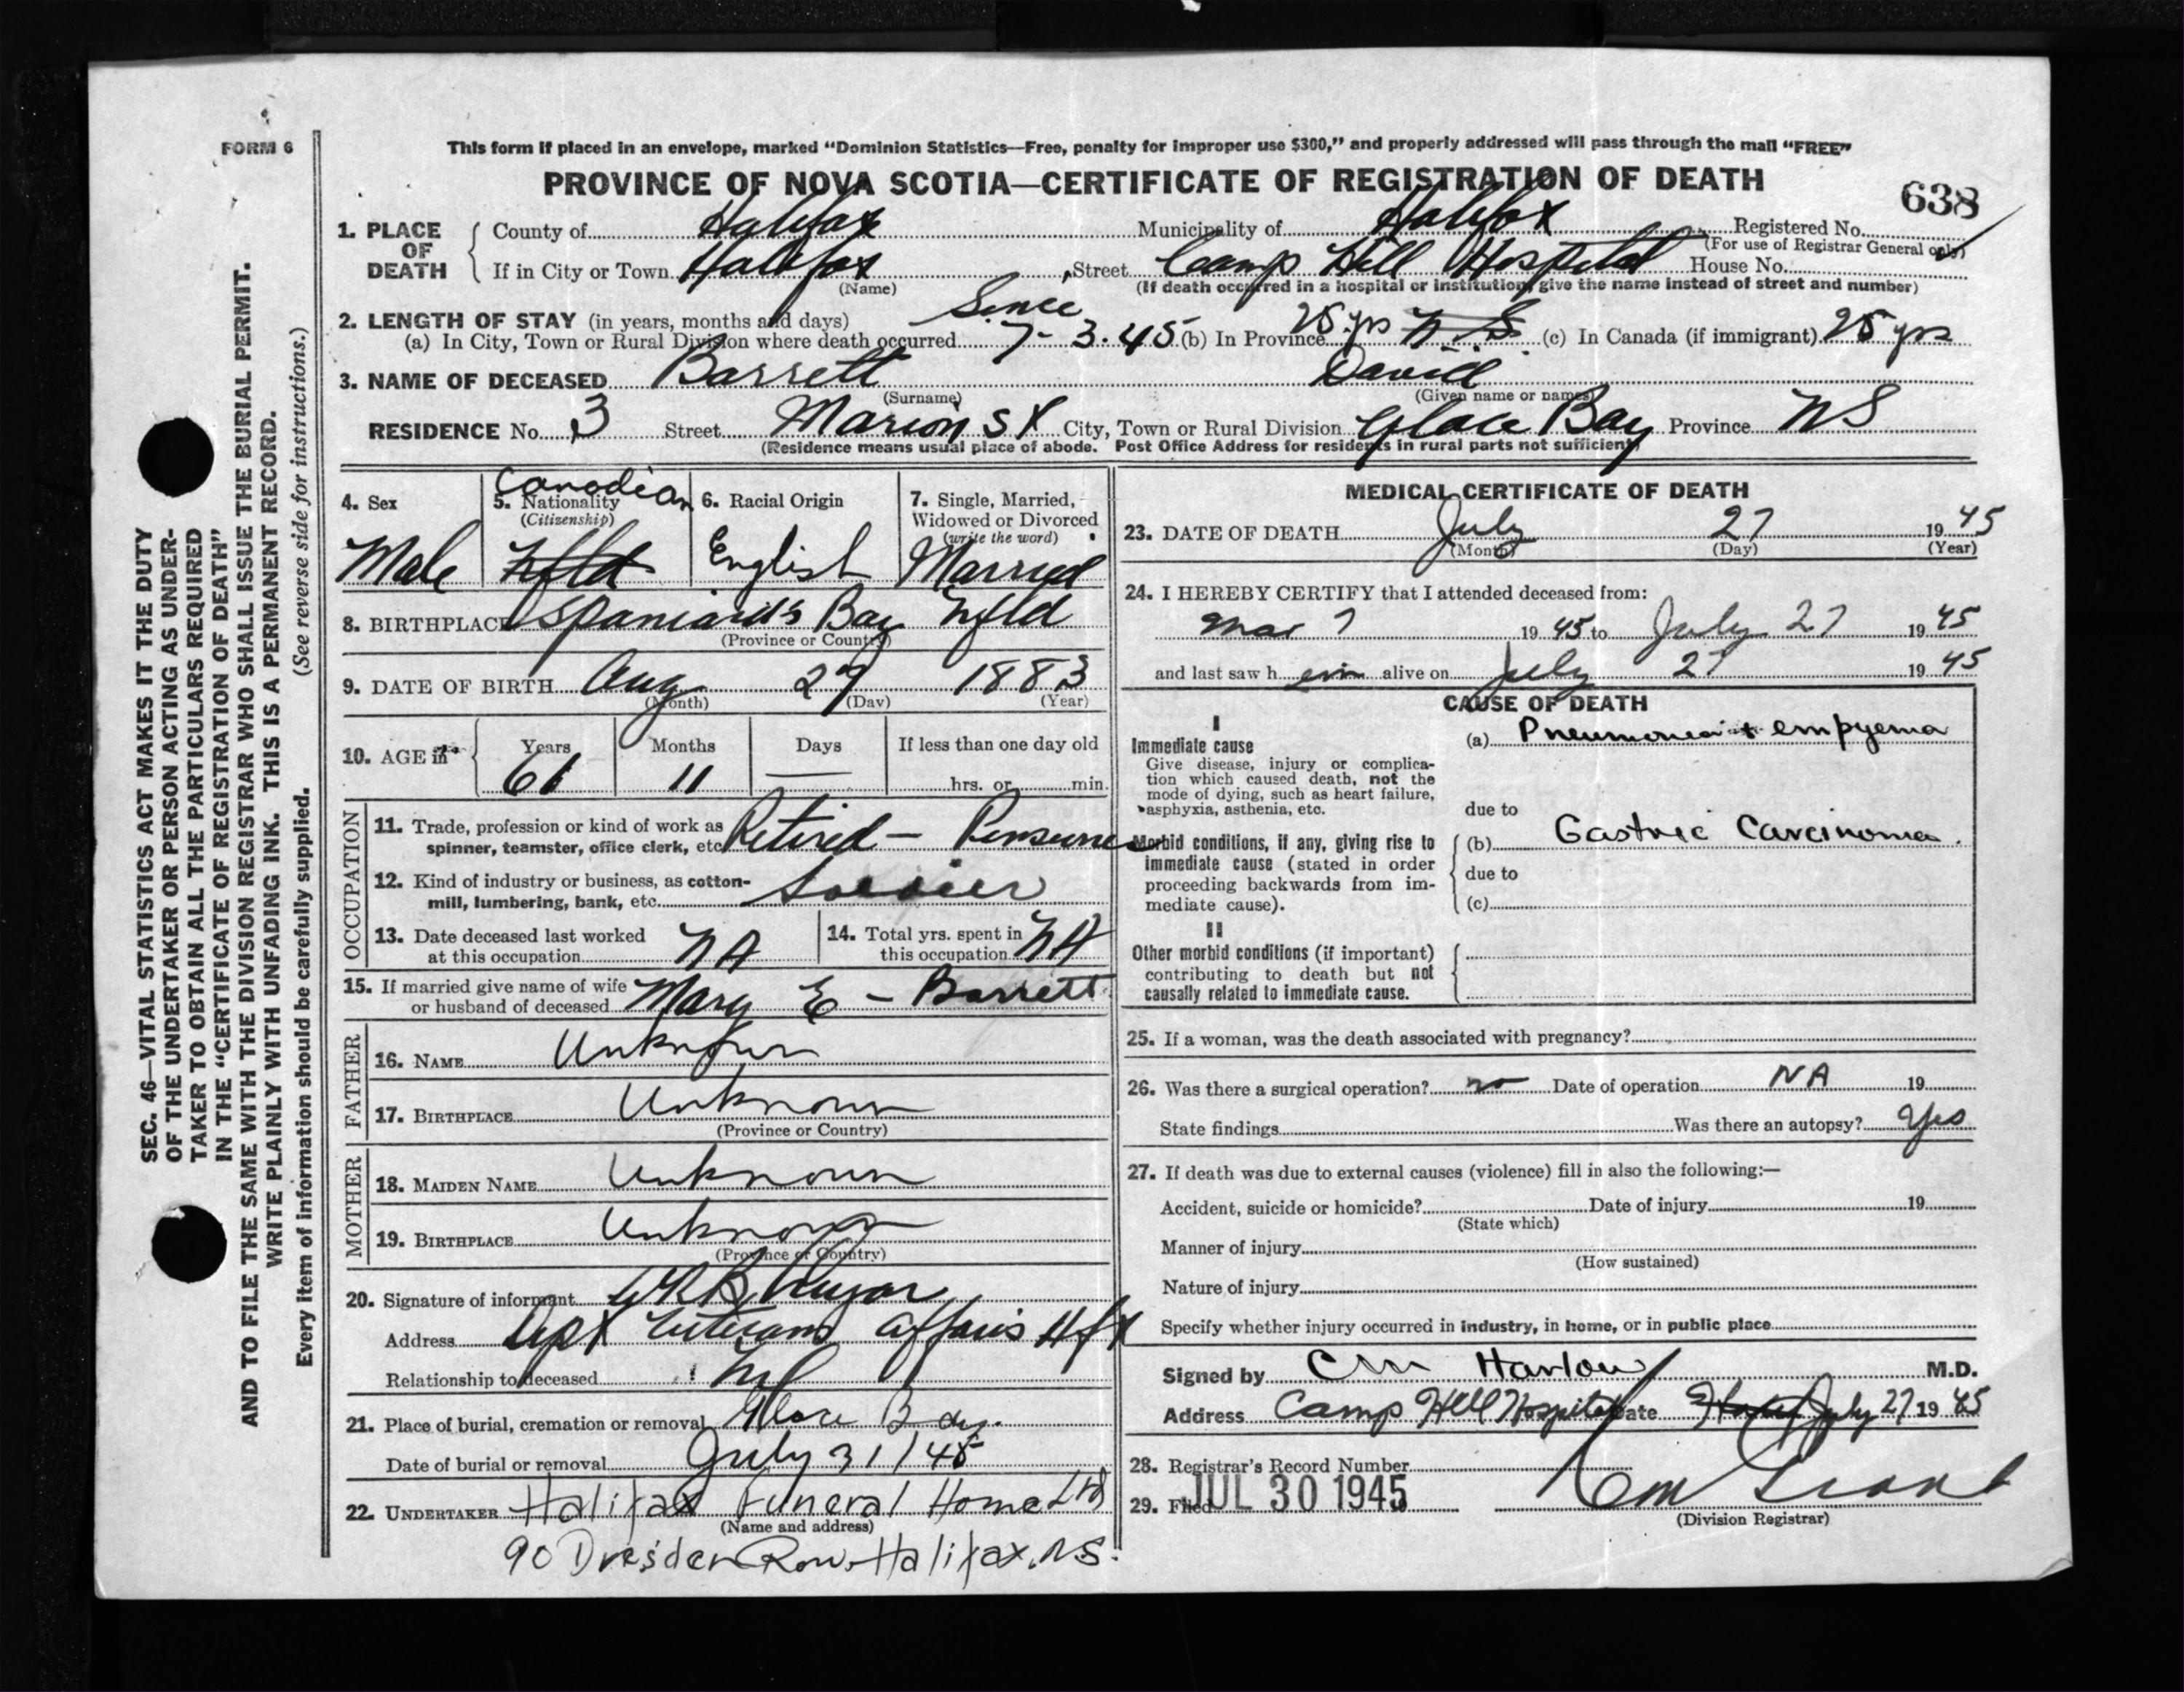 FORM 6
This form if placed in an envelope, marked "Dominion Statistics—Free, penalty for improper use $300," and properly addressed will pass through the mail "FREE"
PROVINCE OF NOVA SCOTIA—CERTIFICATE OF REGISTRATION OF DEATH
638
1. PLACE OF DEATH
County of Halifax Municipality of Halifax Registered No.
(For use of Registrar General only)
If in City or Town Halifax, Street Camp Hill Hospital House No.
(Name) (If death occurred in a hospital or institution, give the name instead of street and number)
2. LENGTH OF STAY (in years, months and days) Since
(a) In City, Town or Rural Division where death occurred 7-3.45 (b) In Province 25 yrs N S (c) In Canada (if immigrant) 25 yrs
3. NAME OF DECEASED Barrett David
(Surname) (Given name or names)
RESIDENCE No. 3 Street Marion St City, Town or Rural Division Glace Bay Province NS
(Residence means usual place of abode. Post Office Address for residents in rural parts not sufficient)
4. Sex Male
5. Nationality (Citizenship) Canadian Nfld
6. Racial Origin English
7. Single, Married, Widowed or Divorced (write the word) Married
8. BIRTHPLACE Spaniard's Bay Nfld
(Province or Country)
9. DATE OF BIRTH Aug 29 1883
(Month) (Day) (Year)
10. AGE in Years 61 Months 11 Days — If less than one day old
hrs. or min.
OCCUPATION
11. Trade, profession or kind of work as spinner, teamster, office clerk, etc. Retired — Pensioner
12. Kind of industry or business, as cotton-mill, lumbering, bank, etc. Soldier
13. Date deceased last worked at this occupation NA
14. Total yrs. spent in this occupation NA
15. If married give name of wife or husband of deceased Mary E — Barrett
FATHER
16. NAME Unknown
17. BIRTHPLACE Unknown
(Province or Country)
MOTHER
18. MAIDEN NAME Unknown
19. BIRTHPLACE Unknown
(Province or Country)
20. Signature of informant
Address Dept Veterans Affairs Hfx
Relationship to deceased Nil
21. Place of burial, cremation or removal Glace Bay.
Date of burial or removal July 31/45
22. UNDERTAKER Halifax Funeral Home Ltd
(Name and address)
90 Dresden Row Halifax, N.S.
MEDICAL CERTIFICATE OF DEATH
23. DATE OF DEATH July 27 1945
(Month) (Day) (Year)
24. I HEREBY CERTIFY that I attended deceased from:
Mar 7 1945 to July 27 1945
and last saw h im alive on July 27 1945
CAUSE OF DEATH
I
Immediate cause
Give disease, injury or complication which caused death, not the mode of dying, such as heart failure, asphyxia, asthenia, etc.
(a) Pneumonia + empyema
due to
Morbid conditions, if any, giving rise to immediate cause (stated in order proceeding backwards from immediate cause).
(b) Gastric Carcinoma.
due to
(c)
II
Other morbid conditions (if important) contributing to death but not causally related to immediate cause.
25. If a woman, was the death associated with pregnancy?
26. Was there a surgical operation? no Date of operation NA 19
State findings Was there an autopsy? Yes
27. If death was due to external causes (violence) fill in also the following:—
Accident, suicide or homicide? Date of injury 19
(State which)
Manner of injury
(How sustained)
Nature of injury
Specify whether injury occurred in industry, in home, or in public place
Signed by C M Harlow M.D.
Address Camp Hill Hospital Date July 27 1945
28. Registrar's Record Number
29. Filed JUL 30 1945 Grant
(Division Registrar)
SEC. 46—VITAL STATISTICS ACT MAKES IT THE DUTY
OF THE UNDERTAKER OR PERSON ACTING AS UNDER-
TAKER TO OBTAIN ALL THE PARTICULARS REQUIRED
IN THE "CERTIFICATE OF REGISTRATION OF DEATH"
AND TO FILE THE SAME WITH THE DIVISION REGISTRAR WHO SHALL ISSUE THE BURIAL PERMIT.
WRITE PLAINLY WITH UNFADING INK. THIS IS A PERMANENT RECORD.
Every item of information should be carefully supplied. (See reverse side for instructions.)